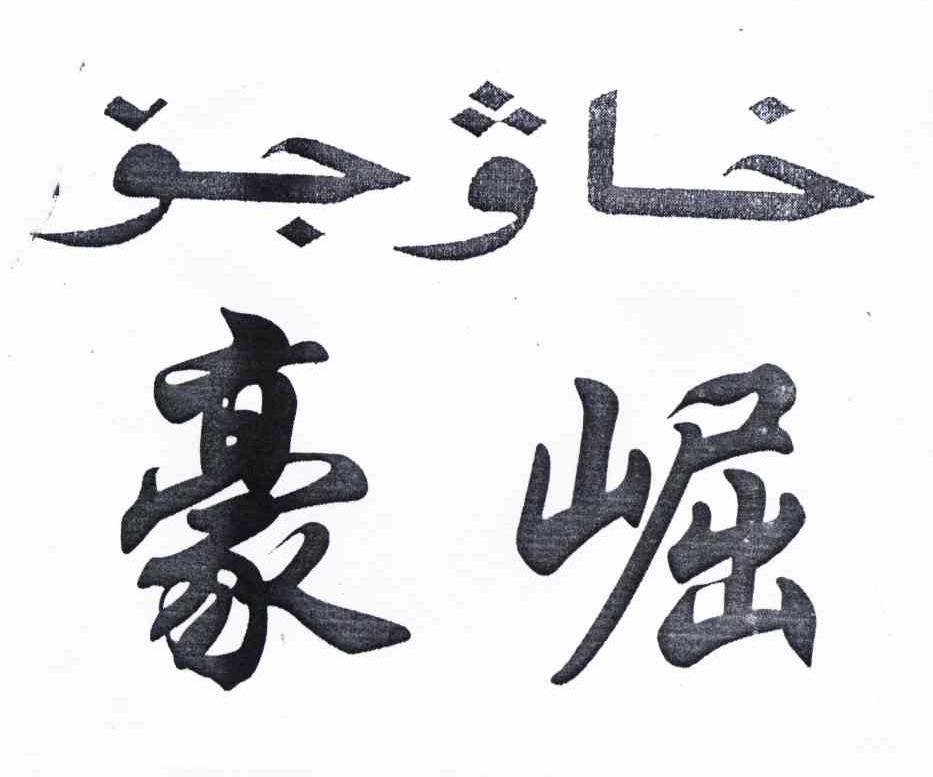 خاۋجۆ
豪崛